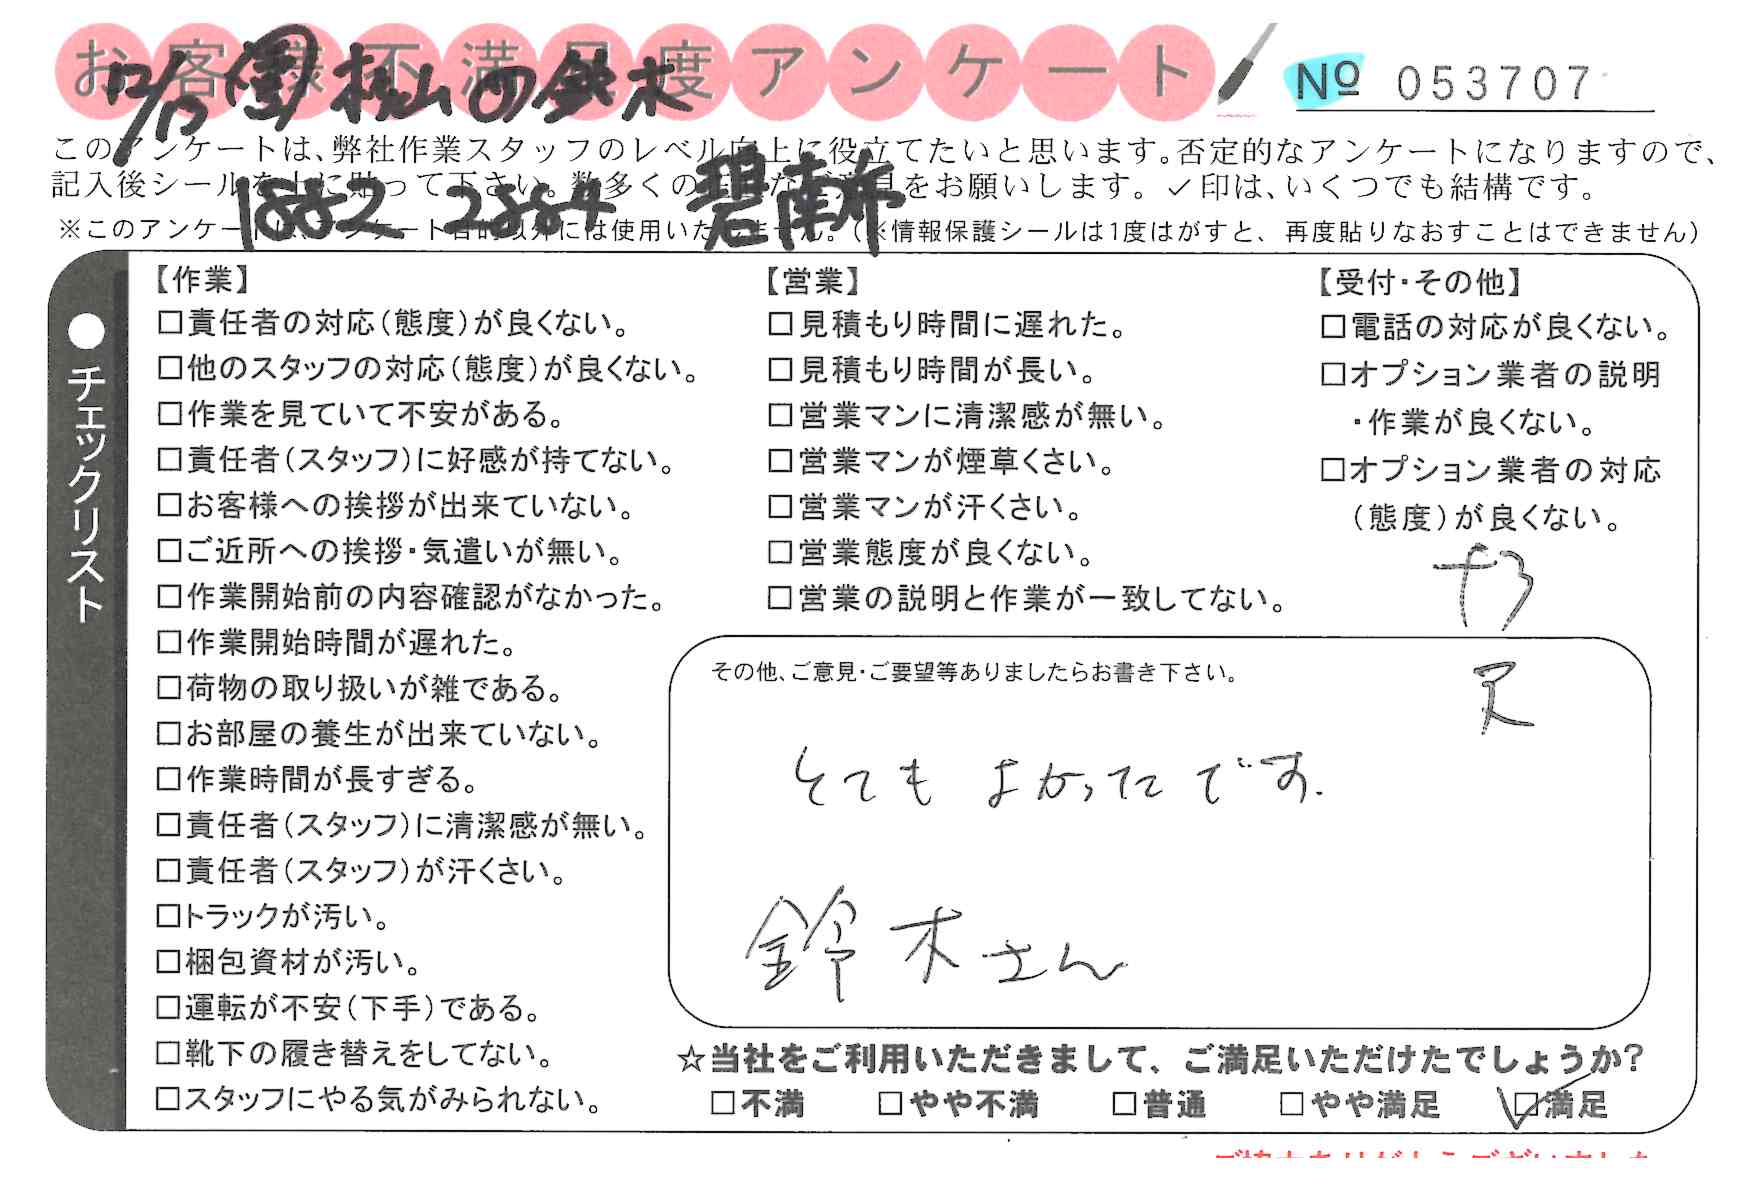 お客様不満足度アンケート
No 053707
12/13 桃山の鈴木
このアンケートは、弊社作業スタッフのレベル向上に役立てたいと思います。否定的なアンケートになりますので、
記入後シールを上に貼って下さい。数多くの正直なご意見をお願いします。✓印は、いくつでも結構です。
1882 2884 碧南市
※このアンケートは、アンケート目的以外には使用いたしません。(※情報保護シールは1度はがすと、再度貼りなおすことはできません)
●チェックリスト
【作業】
□責任者の対応(態度)が良くない。
□他のスタッフの対応(態度)が良くない。
□作業を見ていて不安がある。
□責任者(スタッフ)に好感が持てない。
□お客様への挨拶が出来ていない。
□ご近所への挨拶・気遣いが無い。
□作業開始前の内容確認がなかった。
□作業開始時間が遅れた。
□荷物の取り扱いが雑である。
□お部屋の養生が出来ていない。
□作業時間が長すぎる。
□責任者(スタッフ)に清潔感が無い。
□責任者(スタッフ)が汗くさい。
□トラックが汚い。
□梱包資材が汚い。
□運転が不安(下手)である。
□靴下の履き替えをしてない。
□スタッフにやる気がみられない。
【営業】
□見積もり時間に遅れた。
□見積もり時間が長い。
□営業マンに清潔感が無い。
□営業マンが煙草くさい。
□営業マンが汗くさい。
□営業態度が良くない。
□営業の説明と作業が一致してない。
【受付・その他】
□電話の対応が良くない。
□オプション業者の説明
・作業が良くない。
□オプション業者の対応
(態度)が良くない。
その他、ご意見・ご要望等ありましたらお書き下さい。
とてもよかったです.
鈴木さん
☆当社をご利用いただきまして、ご満足いただけたでしょうか?
□不満 □やや不満 □普通 □やや満足 ☑満足